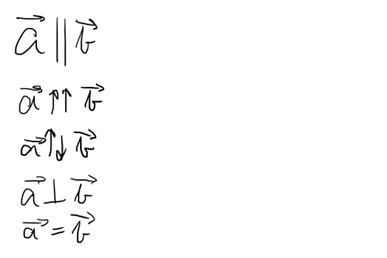 a⃗ || b⃗
a⃗ ↑↑ b⃗
a⃗ ↑↓ b⃗
a⃗ ⊥ b⃗
a⃗ = b⃗